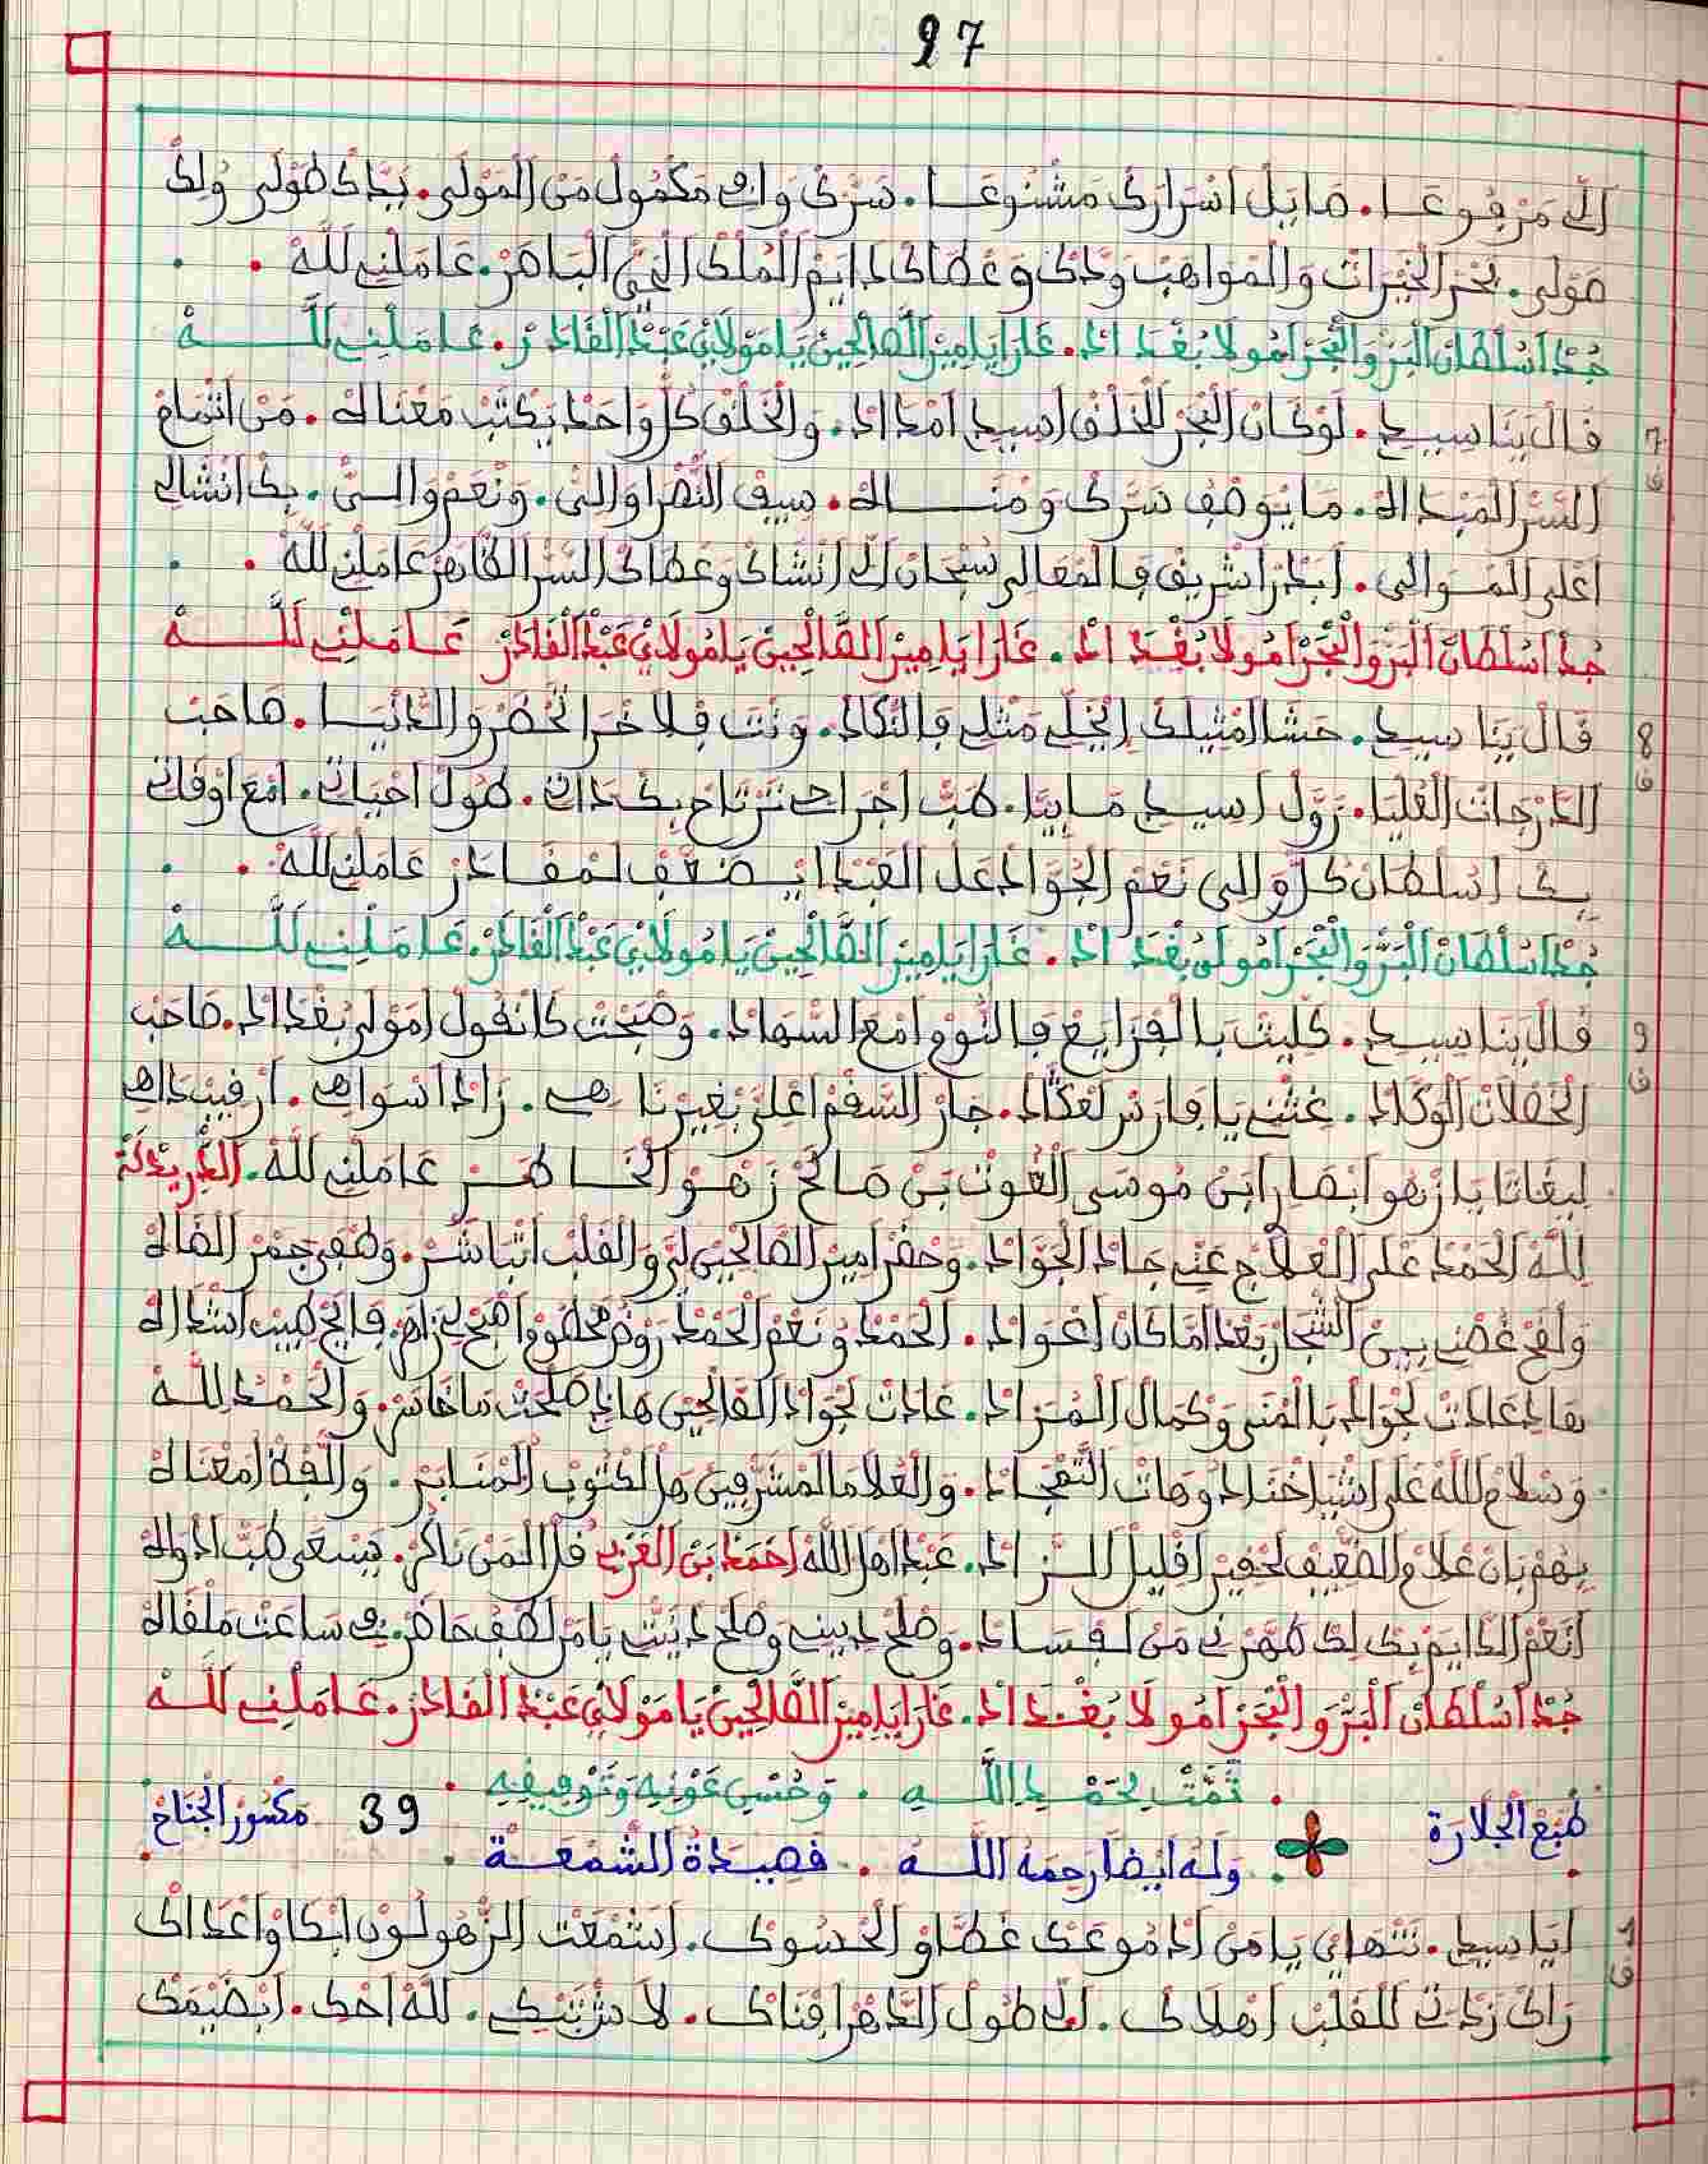 97
الِّي مَرْفُوعَا. مَا بَلْ اَسْرَارَكْ مَشْنُوعَا. سَرَّكْ وَافِي مَكْمُولْ مَنْ الْمَوْلَى. بَيَّاكْ طَوْلَى وُلِكْ
صَوْلَى. بَحْرْ الْخَيْرَاتْ وَالْمَوَاهَبْ وَدَّكْ وَعْطَاكْ دَايَمْ الْمُلْكْ الْحَيّْ الْبَاهَرْ. عَامَلْنِي لَلَّهْ
جُدْ اَسُلْطَانْ الْبَرّْ وَالْبْحَرْ اَمُولاَ بُغْدَادْ. غَارَا يَامِيرْ الصَّالْحِينْ يَامُولاَيْ عَبْدْ الْقَادَرْ. عَامَلْنِي لَلَّهْ
7 قَالْ يَنَا سِيدِي. لَوْ كَانْ الْبْحَرْ لَلْخَلْقْ اَسِيدِي اَمْدَادْ. وَالْخَلْقْ كُلّْ وَاحَدْ يَكْتَبْ مَعْنَاهْ. مَنْ
السَّرّْ الْمَبْدَاهْ. مَا يُوصْفْ سَرَّكْ وَمْنَاهْ. سِيفْ النَّصْرْ اَوَالِي. وَنْعَمْ وَالِي. بِكْ اَنْشَالِي
اَعْلَى الْمْوَالِي. اَبَدْرْ اَشْرِيفْ فَالْمْعَالِي سُبْحَانْ الِّي اَنْشَاكْ وَعْطَاكْ السَّرّْ الظَّاهَرْ عَامَلْنِي لَلَّهْ
جُدْ اَسُلْطَانْ الْبَرّْ وَالْبْحَرْ اَمُولاَ بُغْدَادْ. غَارَا يَامِيرْ الصَّالْحِينْ يَامُولاَيْ عَبْدْ الْقَادَرْ عَامَلْنِي لَلَّهْ
8 قَالْ يَنَا سِيدِي. حَشَا لَمْثِيلَكْ اِيْخَلِّي مَثْلِي فَالنّْكَادْ. وَنْتَ فَلاَخْرَا تَحْضَرْ وَالدَّنْيَا. صَاحَبْ
الدَّرْجَاتْ الْعُلْيَا. زَوَّلْ اَسِيدِي مَا بِيَّا. طَبّْ اَجْرَاحِي تَرْتَاحْ بِكْ دَاتِي. طُولْ اَحْيَاتِي. اَمْعَ اَوْقَاتِي
بِكْ اَسُلْطَانْ كُلّْ وَالِي نَعْمْ الْجْوَادْ عَلْ الْعَبْدْ اِيضَعَّفْ لَمْقَادَرْ عَامَلْنِي لَلَّهْ
جُدْ اَسُلْطَانْ الْبَرّْ وَالْبْحَرْ اَمُولَى بُغْدَادْ. غَارَا يَامِيرْ الصَّالْحِينْ يَامُولاَيْ عَبْدْ الْقَادَرْ. عَامَلْنِي لَلَّهْ
9 قَالْ يَنَا سِيدِي. كَلِّيتْ بَالْفْزَايَعْ فَالنُّومْ اَمْعَ السّْهَادْ. وَصْبَحْتْ كَانْقُولْ اَمَوْلَى بُغْدَادْ. صَاحَبْ
الْخَصْلاَتْ الْوَكَّادْ. غِثْنِي يَا فَارَسْ لَعْكَادْ. جَارْ السّْقَمْ اَعْلَيَّ بَغْيَرْنَاهِي. زَادْ اَسْوَاهِي. اَرْقِيبْ دَاهِي
لِيعَاتَا يَا زَهُو اَبْصَارْ اَبَنْ مُوسَى الْغُوثْ بَنْ صَالَحْ زَهُو الْخَاطَرْ عَامَلْنِي لَلَّهْ. الدَّرِيدْكَة
لَلَّهْ الْحَمْدْ عْلَى الْعْلاَجْ عَنِّي جَادْ الْجْوَادْ. وَحْضَرْ اَمِيرْ الصَّالْحِينْ لَيَّ وَالْقَلْبْ اَتْبَاشَرْ. وَطْفَى جْمَرْ الصَّاهْ
وَلْقَحْ غُصْنِي بِينْ الشّْجَارْ بَعْدْ اَمَّا كَانْ اَعْوَادْ. الْحَمْدْ وَنْعَمْ الْحَمْدْ رَوْضْ مَحْضِي فَايَحْ طِيبْ اَشْدَاهْ
هَادِ عَادَتْ لَجْوَادْ بَالْمْنَى وَكْمَالْ الْمْرَادْ. عَادَتْ لَجْوَادْ الصَّالْحِينْ هَادِي صَلْحَتْ مَا خَاسَرْ. وَالْحَمْدُ لِلَّهْ
وَسْلاَمْ اللَّهْ عْلَى اَشْيَاخْنَا دُوهَاتْ التَّمْجَادْ. وَالْعُلاَمَا الْمْشَرّْفِينْ هَلْ الْكْتُوبْ الْمْنَابَرْ. وَالْفَدّْ اَمْعْنَاهْ
بِهُمْ بَانْ عْلاَمْ الضّْعِيفْ لَحْقِيرْ اَقْلِيلْ الزَّادْ. عَبْدْ اَهْلْ اللَّهْ اَحْمَدْ بَنْ الْعَرْبِي قُلْ الْمَنْ نَاكَرْ. يَسْعَى طَبّْ اَدْوَاهْ
اَنْعَمْ الدَّايَمْ بِكْ لِكْ طَهَّرْنِي مَنْ لَفْسَادْ. وَصْلَحْ دِينِي وَصْلَحْ دَنْيَتِي يَا مَنْ لُطْفُ حَاضَرْ. فِي سَاعَتْ مَلْقَاهْ
جُدْ اَسُلْطَانْ الْبَرّْ وَالْبْحَرْ اَمُولاَ بُغْدَادْ. غَارَا يَامِيرْ الصَّالْحِينْ يَامَوْلاَيْ عَبْدْ الْقَادَرْ. عَامَلْنِي لَلَّهْ
تَمَّتْ بِحَمْدِ اللَّهِ. وَحُسْنِ عَوْنِهِ وَتَوْفِيقِهِ
طْبَعْ الْجْلاَرَة وله ايضا رحمه اللّه. قصيدة الشّمعة 39 مكسور الجناح
1 اَيَا سِيدِي. نَتْهَايْ يَا مَنْ اَدْمُوعَكْ غَطَّاوْ الْحْسُوكْ. اَشَمْعَتْ الزّْهُو لُونْ اَبْكَاوْ اَعْدَاكْ
رَاكْ زَدْتِي لَلْقَلْبْ اَهْلاَكْ. الِّي طُولْ الدّْهَرْ اَفْنَاكْ. لَلَّهْ اَحْكِ. اَبْضَيْمَكْ